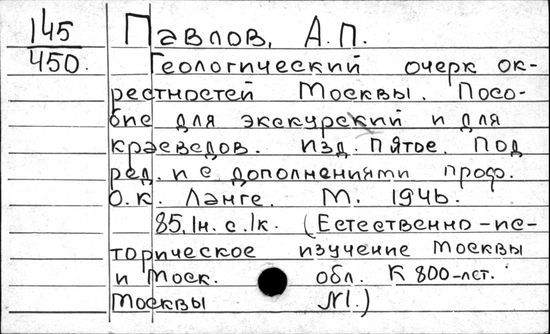 145
450.
Павлов, А.П.
Геологический очерк ок-
рестностей Москвы. Посо-
бие для экскурсий и для
краеведов. изд. пятое. Под
ред. и с дополнениями проф.
О.К. Ланге. М. 1946.
85,1н. с. 1к. (Естественно-ис-
торическое изучение Москвы
и Моск. обл. К 800-лет.
Москвы №1.)